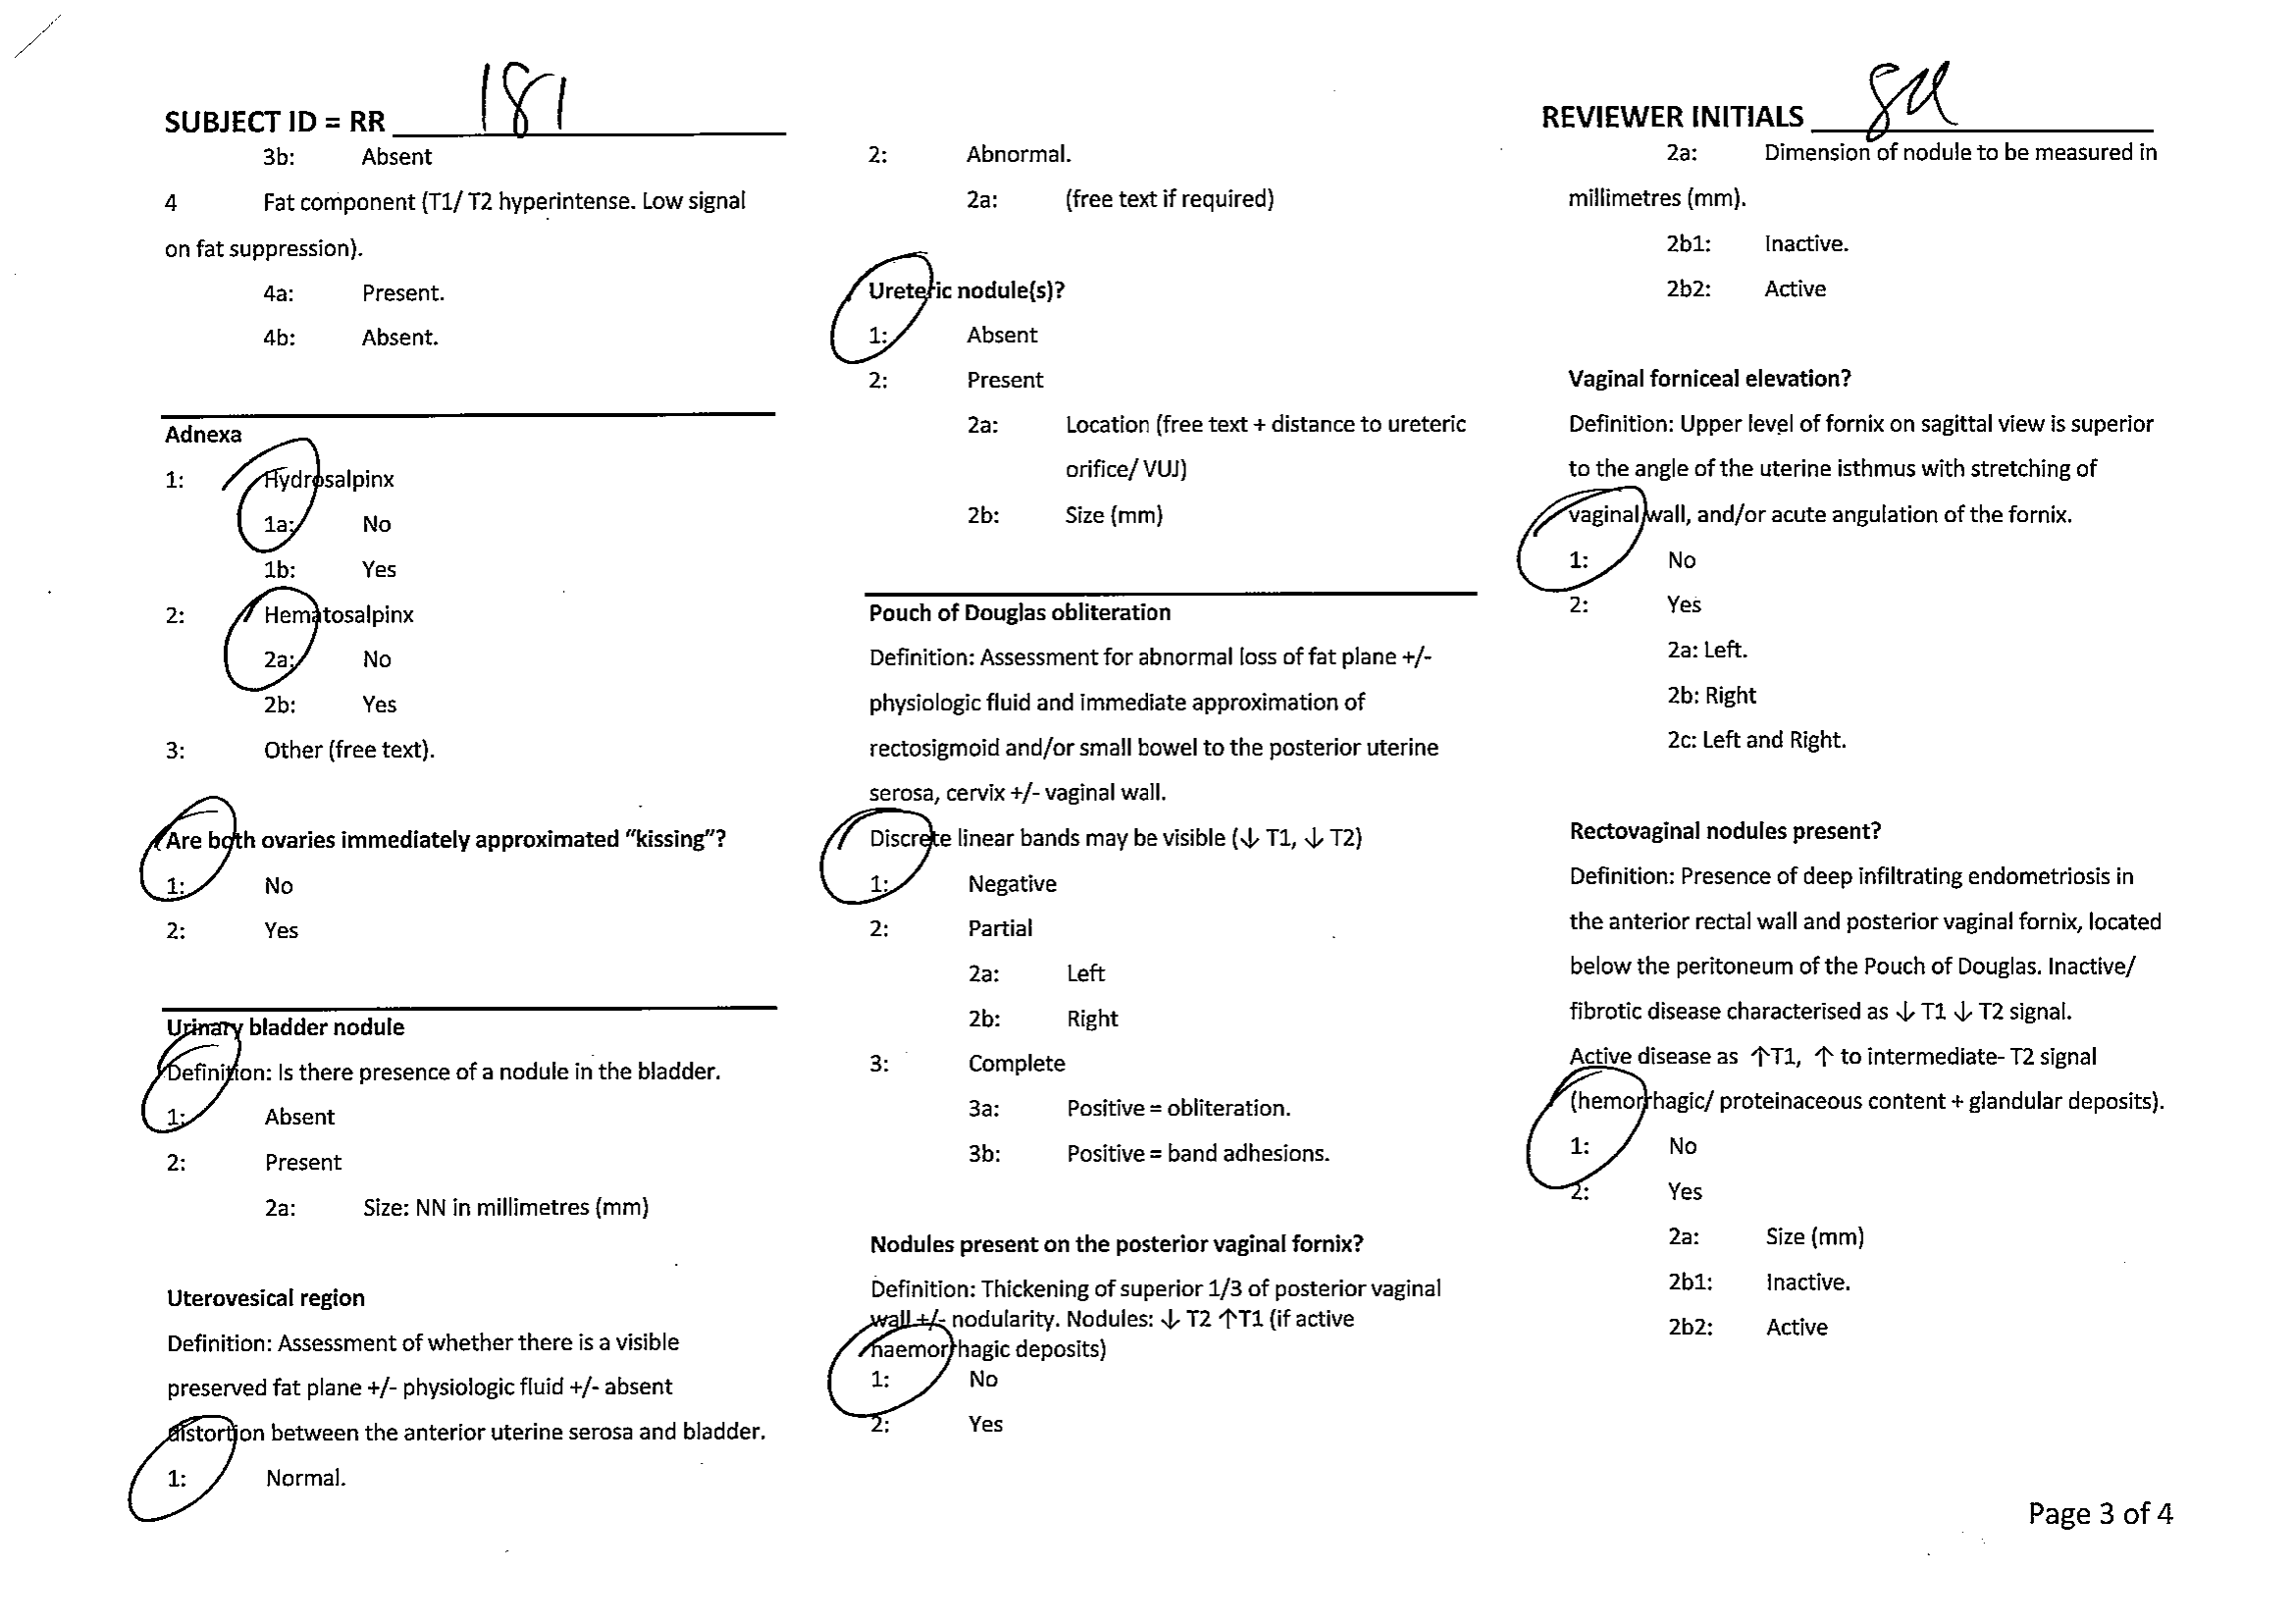 SUBJECT ID = RR 181
3b: Absent
4 Fat component (T1/ T2 hyperintense. Low signal
on fat suppression).
4a: Present.
4b: Absent.
Adnexa
1: Hydrosalpinx
1a: No
1b: Yes
2: Hematosalpinx
2a: No
2b: Yes
3: Other (free text).
Are both ovaries immediately approximated “kissing”?
1: No
2: Yes
Urinary bladder nodule
Definition: Is there presence of a nodule in the bladder.
1: Absent
2: Present
2a: Size: NN in millimetres (mm)
Uterovesical region
Definition: Assessment of whether there is a visible
preserved fat plane +/- physiologic fluid +/- absent
distortion between the anterior uterine serosa and bladder.
1: Normal.
2: Abnormal.
2a: (free text if required)
Ureteric nodule(s)?
1: Absent
2: Present
2a: Location (free text + distance to ureteric
orifice/ VUJ)
2b: Size (mm)
Pouch of Douglas obliteration
Definition: Assessment for abnormal loss of fat plane +/-
physiologic fluid and immediate approximation of
rectosigmoid and/or small bowel to the posterior uterine
serosa, cervix +/- vaginal wall.
Discrete linear bands may be visible (↓ T1, ↓ T2)
1: Negative
2: Partial
2a: Left
2b: Right
3: Complete
3a: Positive = obliteration.
3b: Positive = band adhesions.
Nodules present on the posterior vaginal fornix?
Definition: Thickening of superior 1/3 of posterior vaginal
wall +/- nodularity. Nodules: ↓ T2 ↑T1 (if active
haemorrhagic deposits)
1: No
2: Yes
REVIEWER INITIALS
2a: Dimension of nodule to be measured in
millimetres (mm).
2b1: Inactive.
2b2: Active
Vaginal forniceal elevation?
Definition: Upper level of fornix on sagittal view is superior
to the angle of the uterine isthmus with stretching of
vaginal wall, and/or acute angulation of the fornix.
1: No
2: Yes
2a: Left.
2b: Right
2c: Left and Right.
Rectovaginal nodules present?
Definition: Presence of deep infiltrating endometriosis in
the anterior rectal wall and posterior vaginal fornix, located
below the peritoneum of the Pouch of Douglas. Inactive/
fibrotic disease characterised as ↓ T1 ↓ T2 signal.
Active disease as ↑T1, ↑ to intermediate- T2 signal
(hemorrhagic/ proteinaceous content + glandular deposits).
1: No
2: Yes
2a: Size (mm)
2b1: Inactive.
2b2: Active
Page 3 of 4